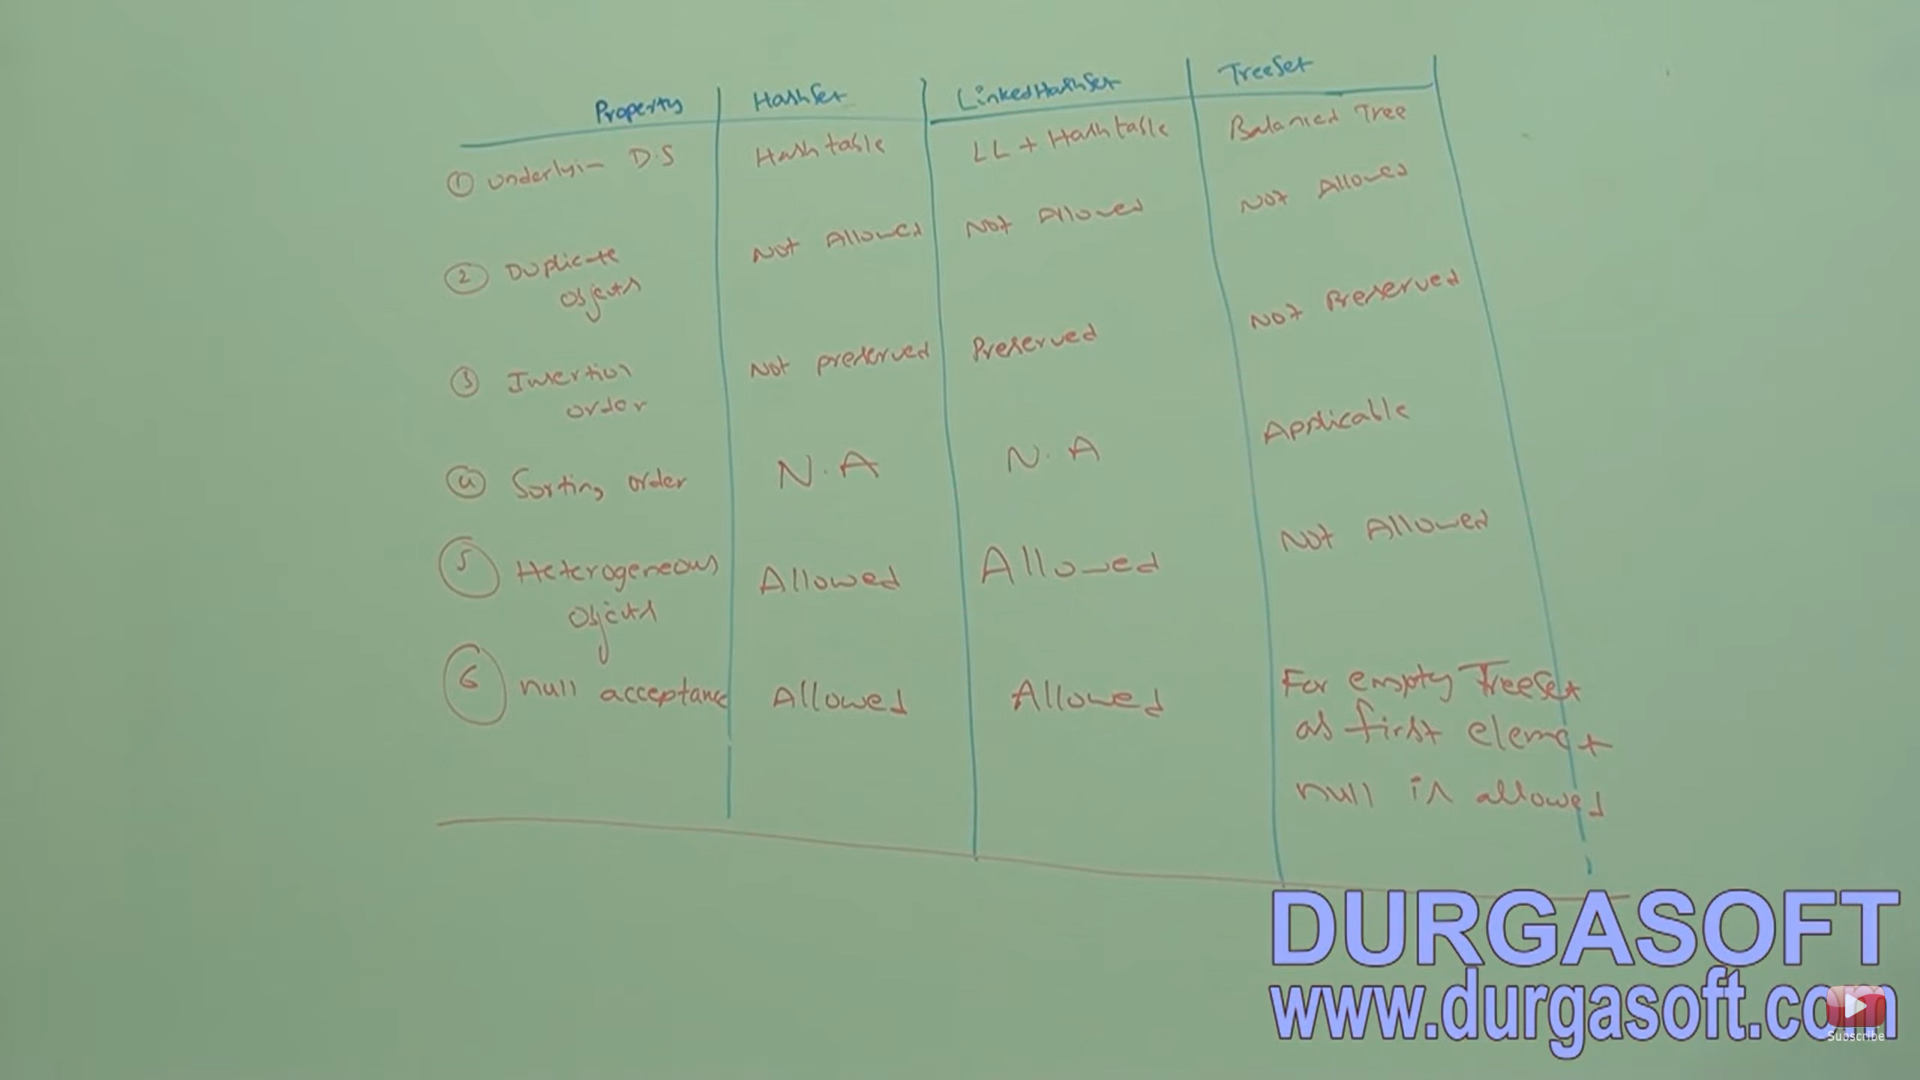 Property HashSet LinkedHashSet TreeSet
① Underlyin D.S Hashtable LL + Hashtable Balanced Tree
② Duplicate Not Allowed Not Allowed Not Allowed
objects
③ Insertion Not preserved Preserved Not Preserved
order
④ Sorting order N.A N.A Applicable
⑤ Heterogeneous Allowed Allowed Not Allowed
objects
⑥ null acceptance Allowed Allowed For empty TreeSet
as first element
null is allowed
DURGASOFT
www.durgasoft.com
Subscribe